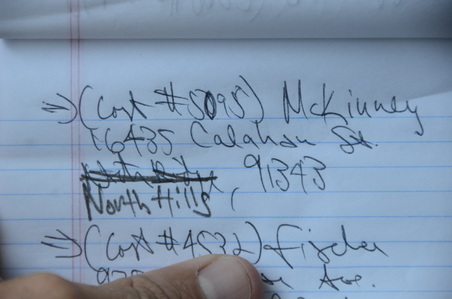 ⇒) (Cost #5095) McKinney
16435 Calahan St.
North Hills, 91343
⇒) (Cost #4532) Fischer
Ave.